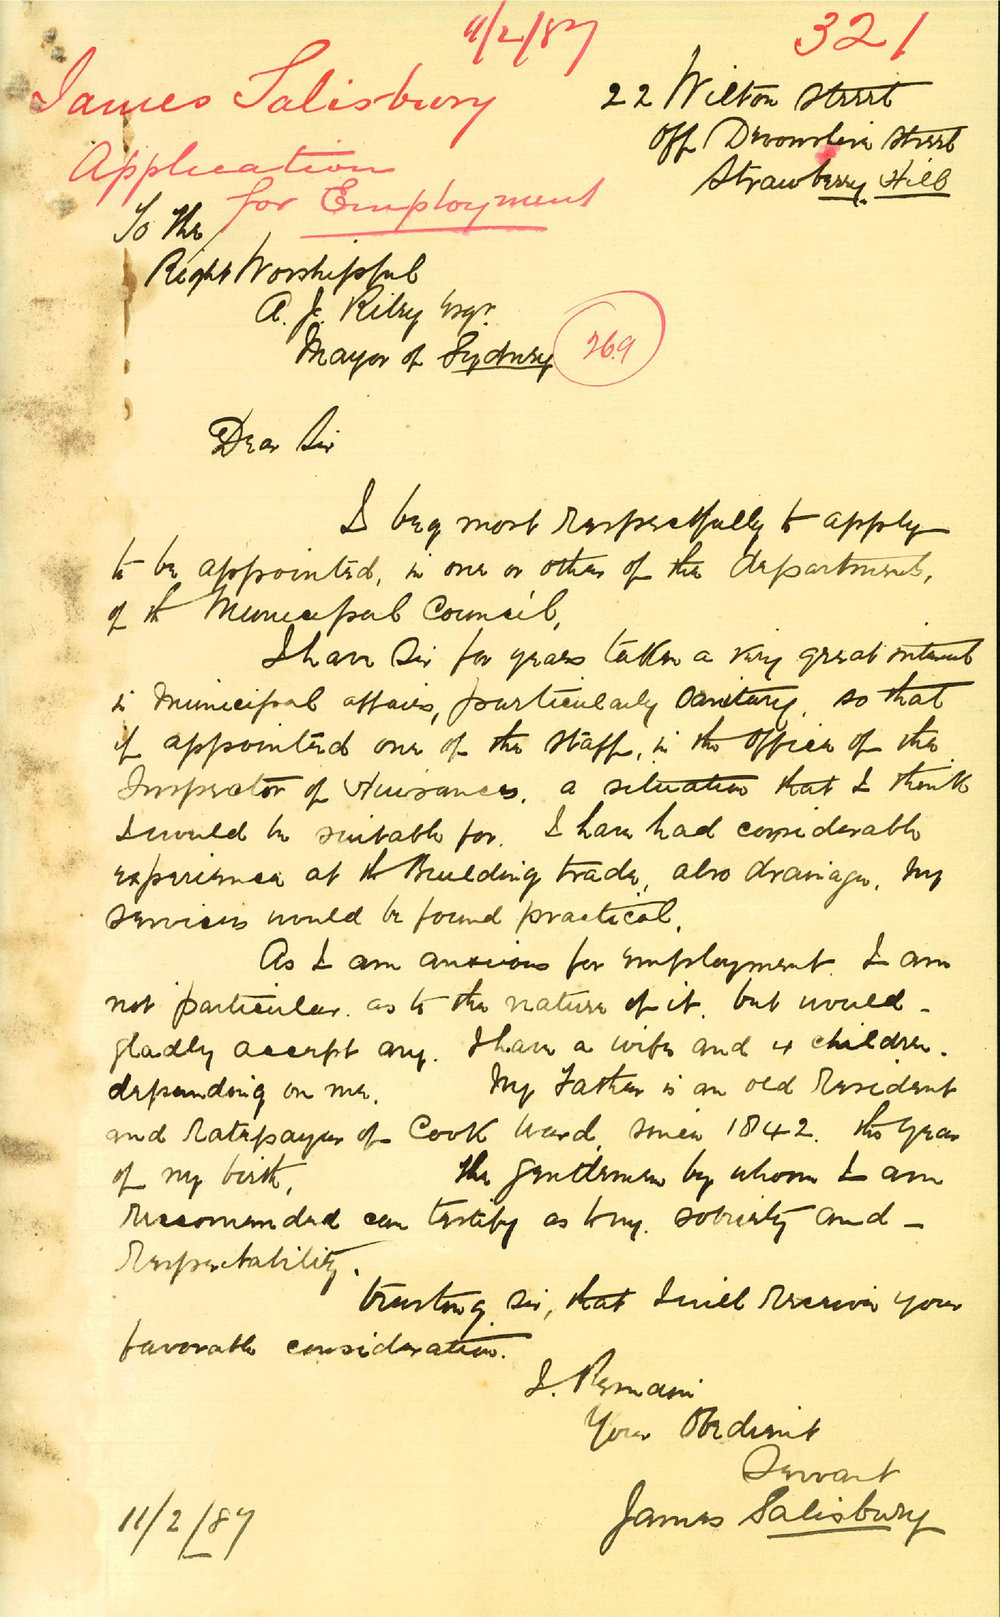 11/2/87
321
James Salisbury
Application
for Employment
22 Wilton Street
off Devonshire Street
Strawberry Hill
To the
Right Worshipful
A. J. Riley Esqr.
Mayor of Sydney
269
Dear Sir
I beg most respectfully to apply
to be appointed, in one or other of the departments,
of the Municipal Council,
I have Sir for years taken a very great interest
in Municipal affairs, particularly Sanitary, so that
if appointed one of the staff, in the office of the
Inspector of Nuisances, a situation that I think
I would be suitable for. I have had considerable
experience at the Building trade, also drainage, My
services would be found practical.
As I am anxious for employment. I am
not particular. as to the nature of it, but would -
gladly accept any. I have a wife and 4 children.
depending on me. My Father is an old Resident
and Ratepayer of Cook Ward, since 1842. the year
of my birth, the gentlemen by whom I am
Reccomended can testify as to my. sobriety and -
Respectability.
trusting Sir, that I will Receive your
favorable consideration.
I. Remain
Your Obedient
Servant
James Salisbury
11/2/87